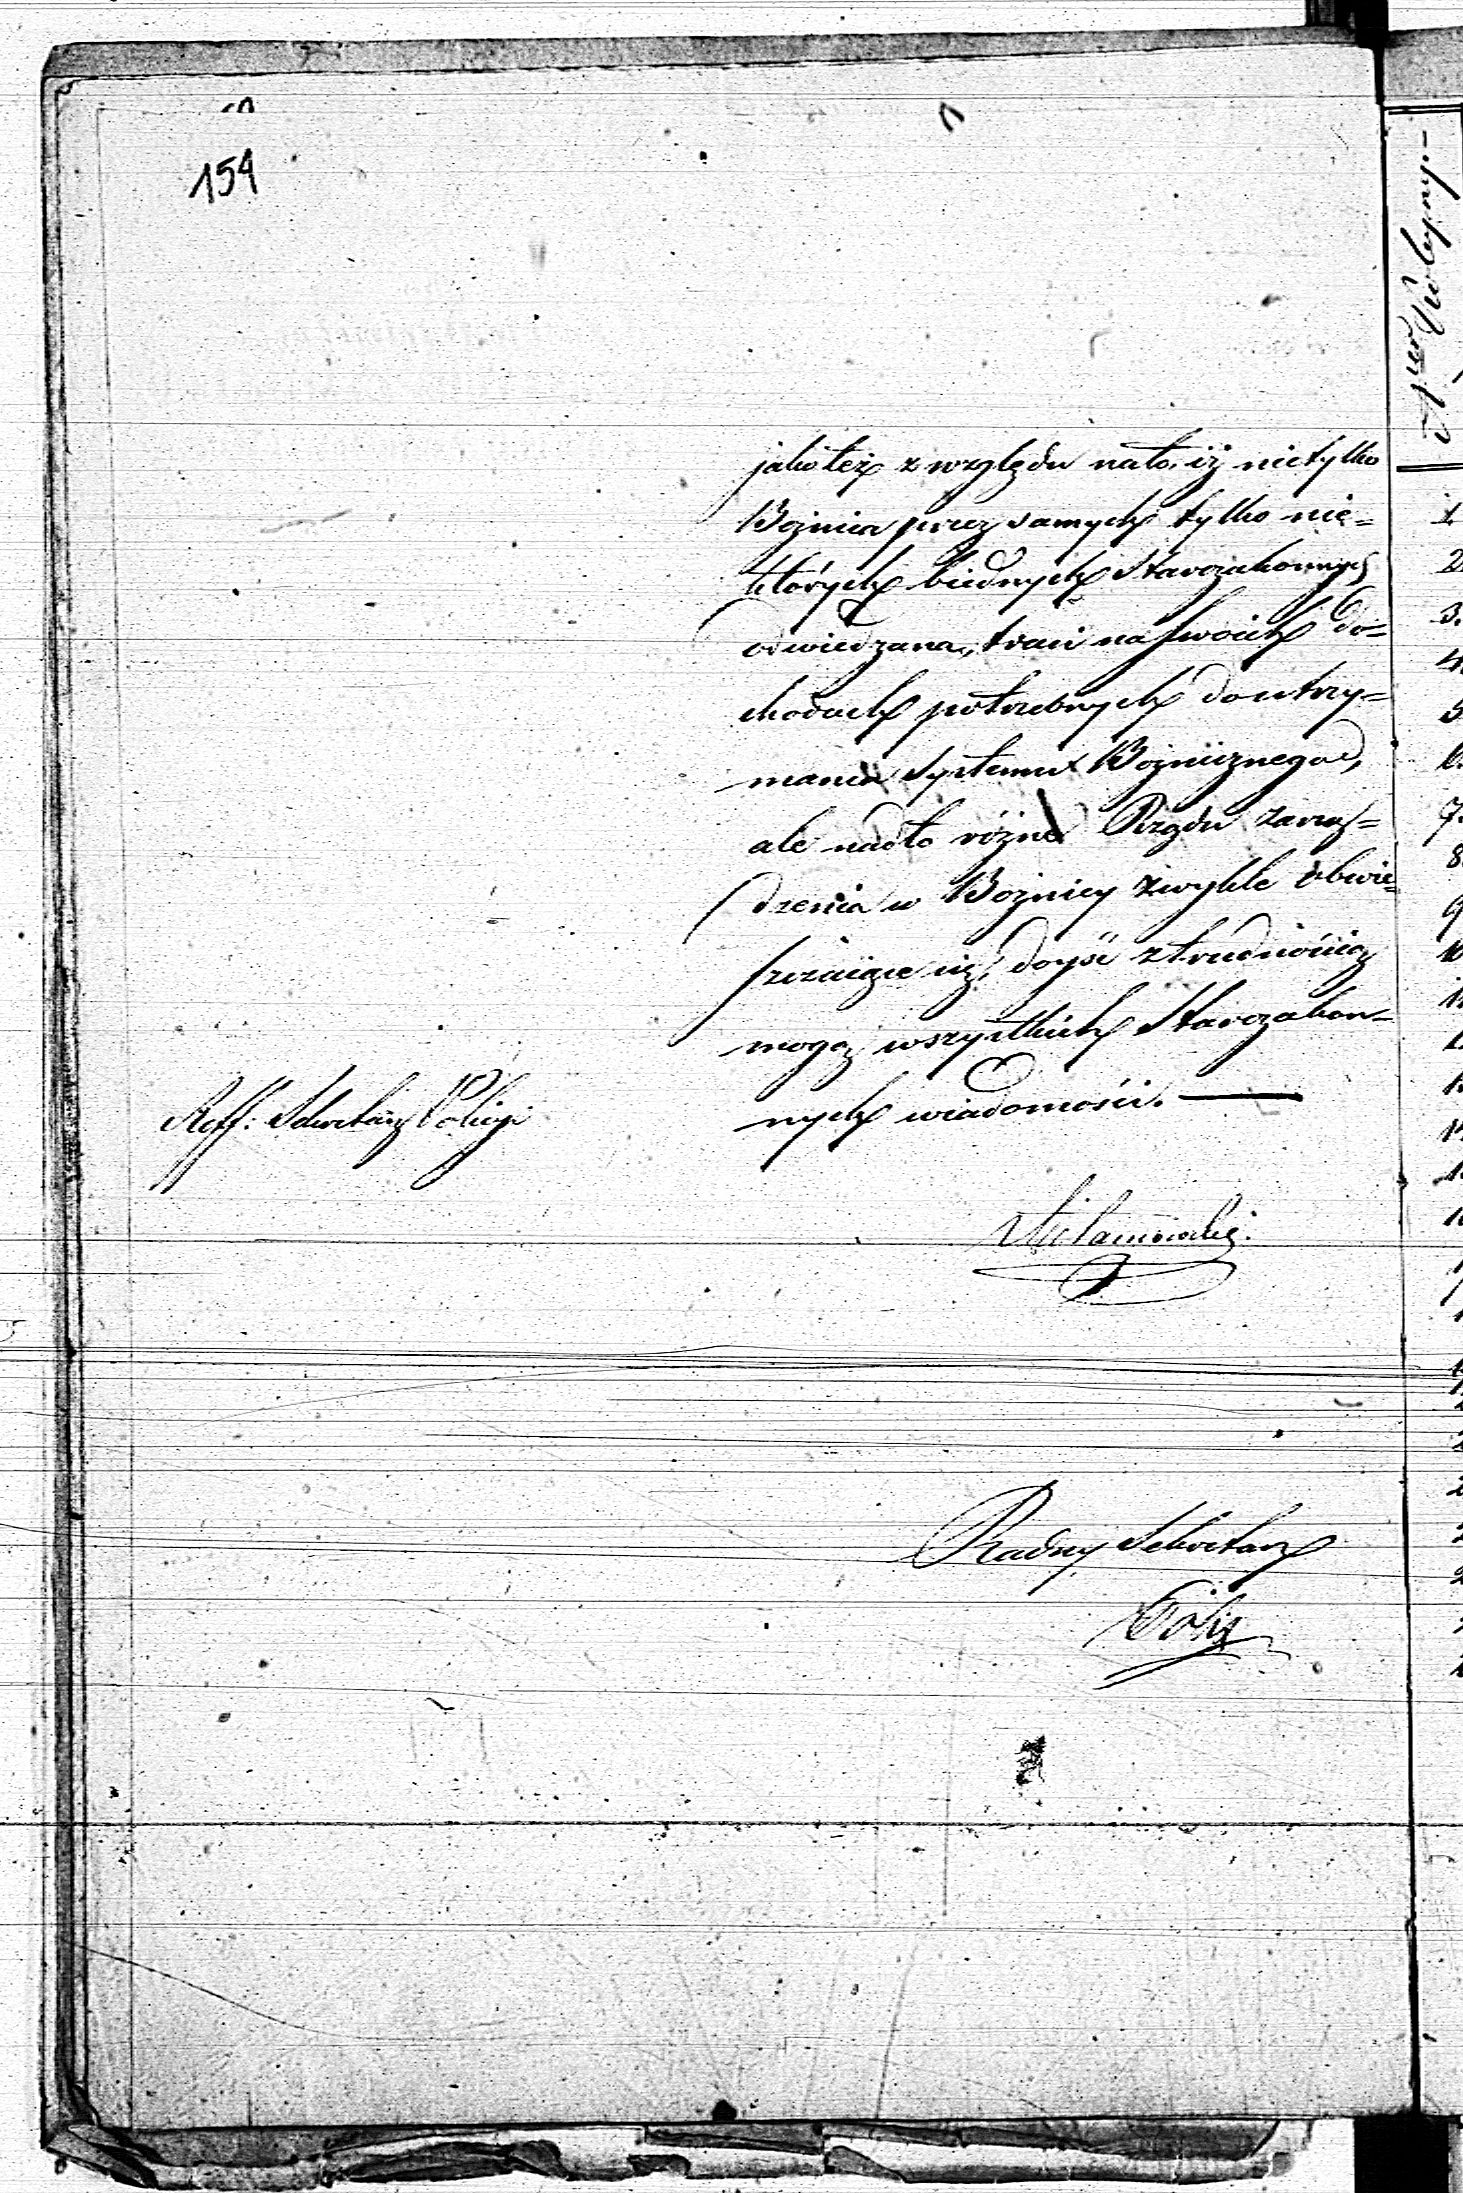 154
jakoteż z względu na to, iż nietylko
Bożnica przez samych tylko nie=
których biednych Starozakonnych
odwiedzana, traci na swoich do=
chodach potrzebnych do utrzy=
mania systemu Bożniicznego,
ale nadto różne Rządu zarzą=
dzenia w Bożnicy zwykle obwie=
szczaiące się, dojść z trudnością
mogą wszystkich Starozakon=
nych wiadomości.
Reff: Sekretarz Policyi
Radny Sekretarz
1.
2.
3.
4.
5.
6.
7.
8.
9.
10.